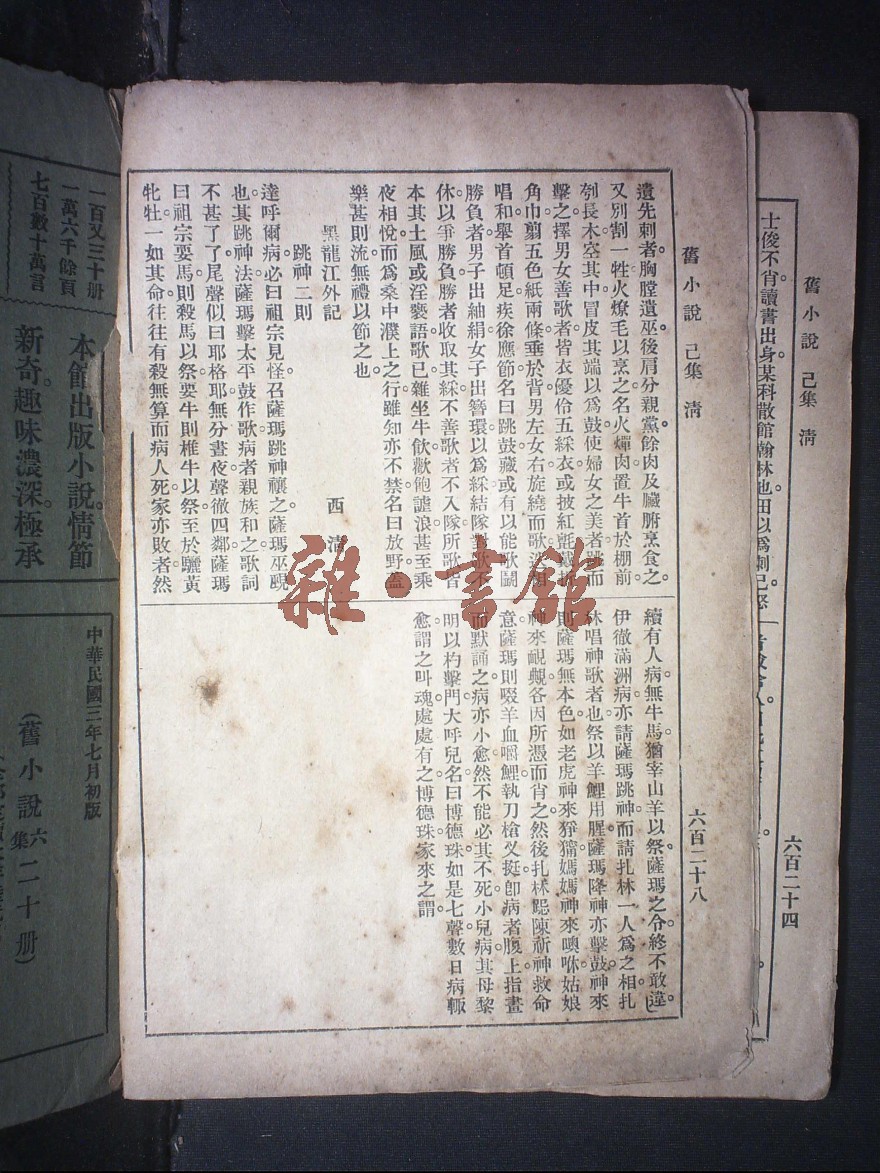 士俊不肖讀書出身某科散館翰林也田以爲刺己怒
舊小說 己集 清
六百二十四
舊小說 己集 清
六百二十八
遺先刺者胸膛遺巫後肩分親黨餘肉及臟腑烹食之
又別割一牲火燎毛以烹之名火燀肉置牛首於棚前
刳長木空其中冒皮其端以爲鼓使婦女之美者跳而
擊之擇男女善歌者皆衣優伶五綵衣或披紅氈戴折
角巾翦五色紙兩條垂於背男左女右旋繞而歌迭相
唱和舉首頓足疾徐應節名曰跳鼓藏或有以能歌鬭
勝負者男子出紬絹女子出簪環以爲綵結隊對歌不
休以爭勝負勝者收取其綵不善歌者不入隊所歌皆
本其土風或淫褻語歌已雜坐牛飲歡飽謔浪甚至乘
夜相悅而爲桑中濮上之行雖知亦不禁名曰放野蓋
樂甚則流無禮以節之也
黑龍江外記 西清
跳神二則
達呼爾病必曰祖宗見怪召薩瑪跳神禳之薩瑪巫覡
也其跳神法薩瑪擊太平鼓作歌病者親族和之歌詞
不甚了了尾聲似曰耶格耶無分晝夜聲徹四鄰薩瑪
曰祖宗要馬則殺馬以祭要牛則椎牛以祭至於驪黃
牝牡一如其命往往有殺無算而病人死家亦敗者然
續有人病無牛馬猶宰山羊以祭薩瑪之令終不敢違
伊徹滿洲病亦請薩瑪跳神而請扎林一人爲之相扎
林唱神歌者也祭以羊鯉用腥薩瑪降神亦擊鼓神來
則薩瑪無本色如老虎神來猙獰媽媽神來噢咻姑娘
神來靦覥各因所憑而肖之然後扎林跽陳祈神救命
意薩瑪則啜羊血嚼鯉執刀槍叉挺卽病者腹上指畫
而默誦之病亦小愈然不能必其不死小兒病其母黎
明以杓擊門大呼兒名曰博德珠如是七聲數日病輒
愈謂之叫魂處處有之博德珠家來之謂
一百又三十册
一萬六千餘頁
七百數十萬言
本館出版小說情節
新奇趣味濃深極承
中華民國三年七月初版
(舊小說六集二十册)
雜·書館